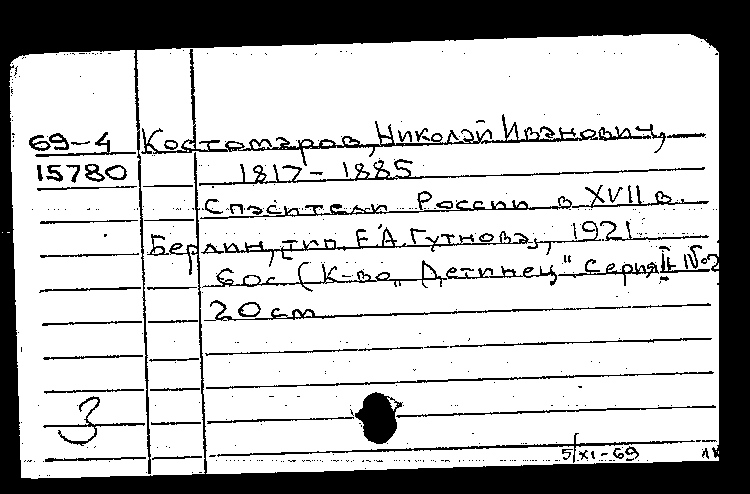 69-4 Костомаров, Николай Иванович,
15780 1817-1885
Спасители России в XVII в.
Берлин, тип. Е.А. Гутнова, 1921
60с (К-во "Детинец" Серия II №2
20 cm
3
5/XI-69